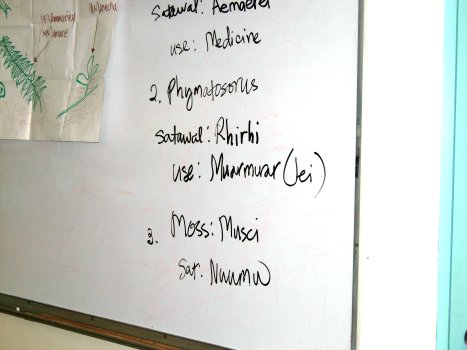 Satawal: Aemaerel
use: Medicine
2. Phymatosorus
Satawal: Rhirhi
use: Muarmurar (lei)
3. Moss: Musci
Sat: Nuumw